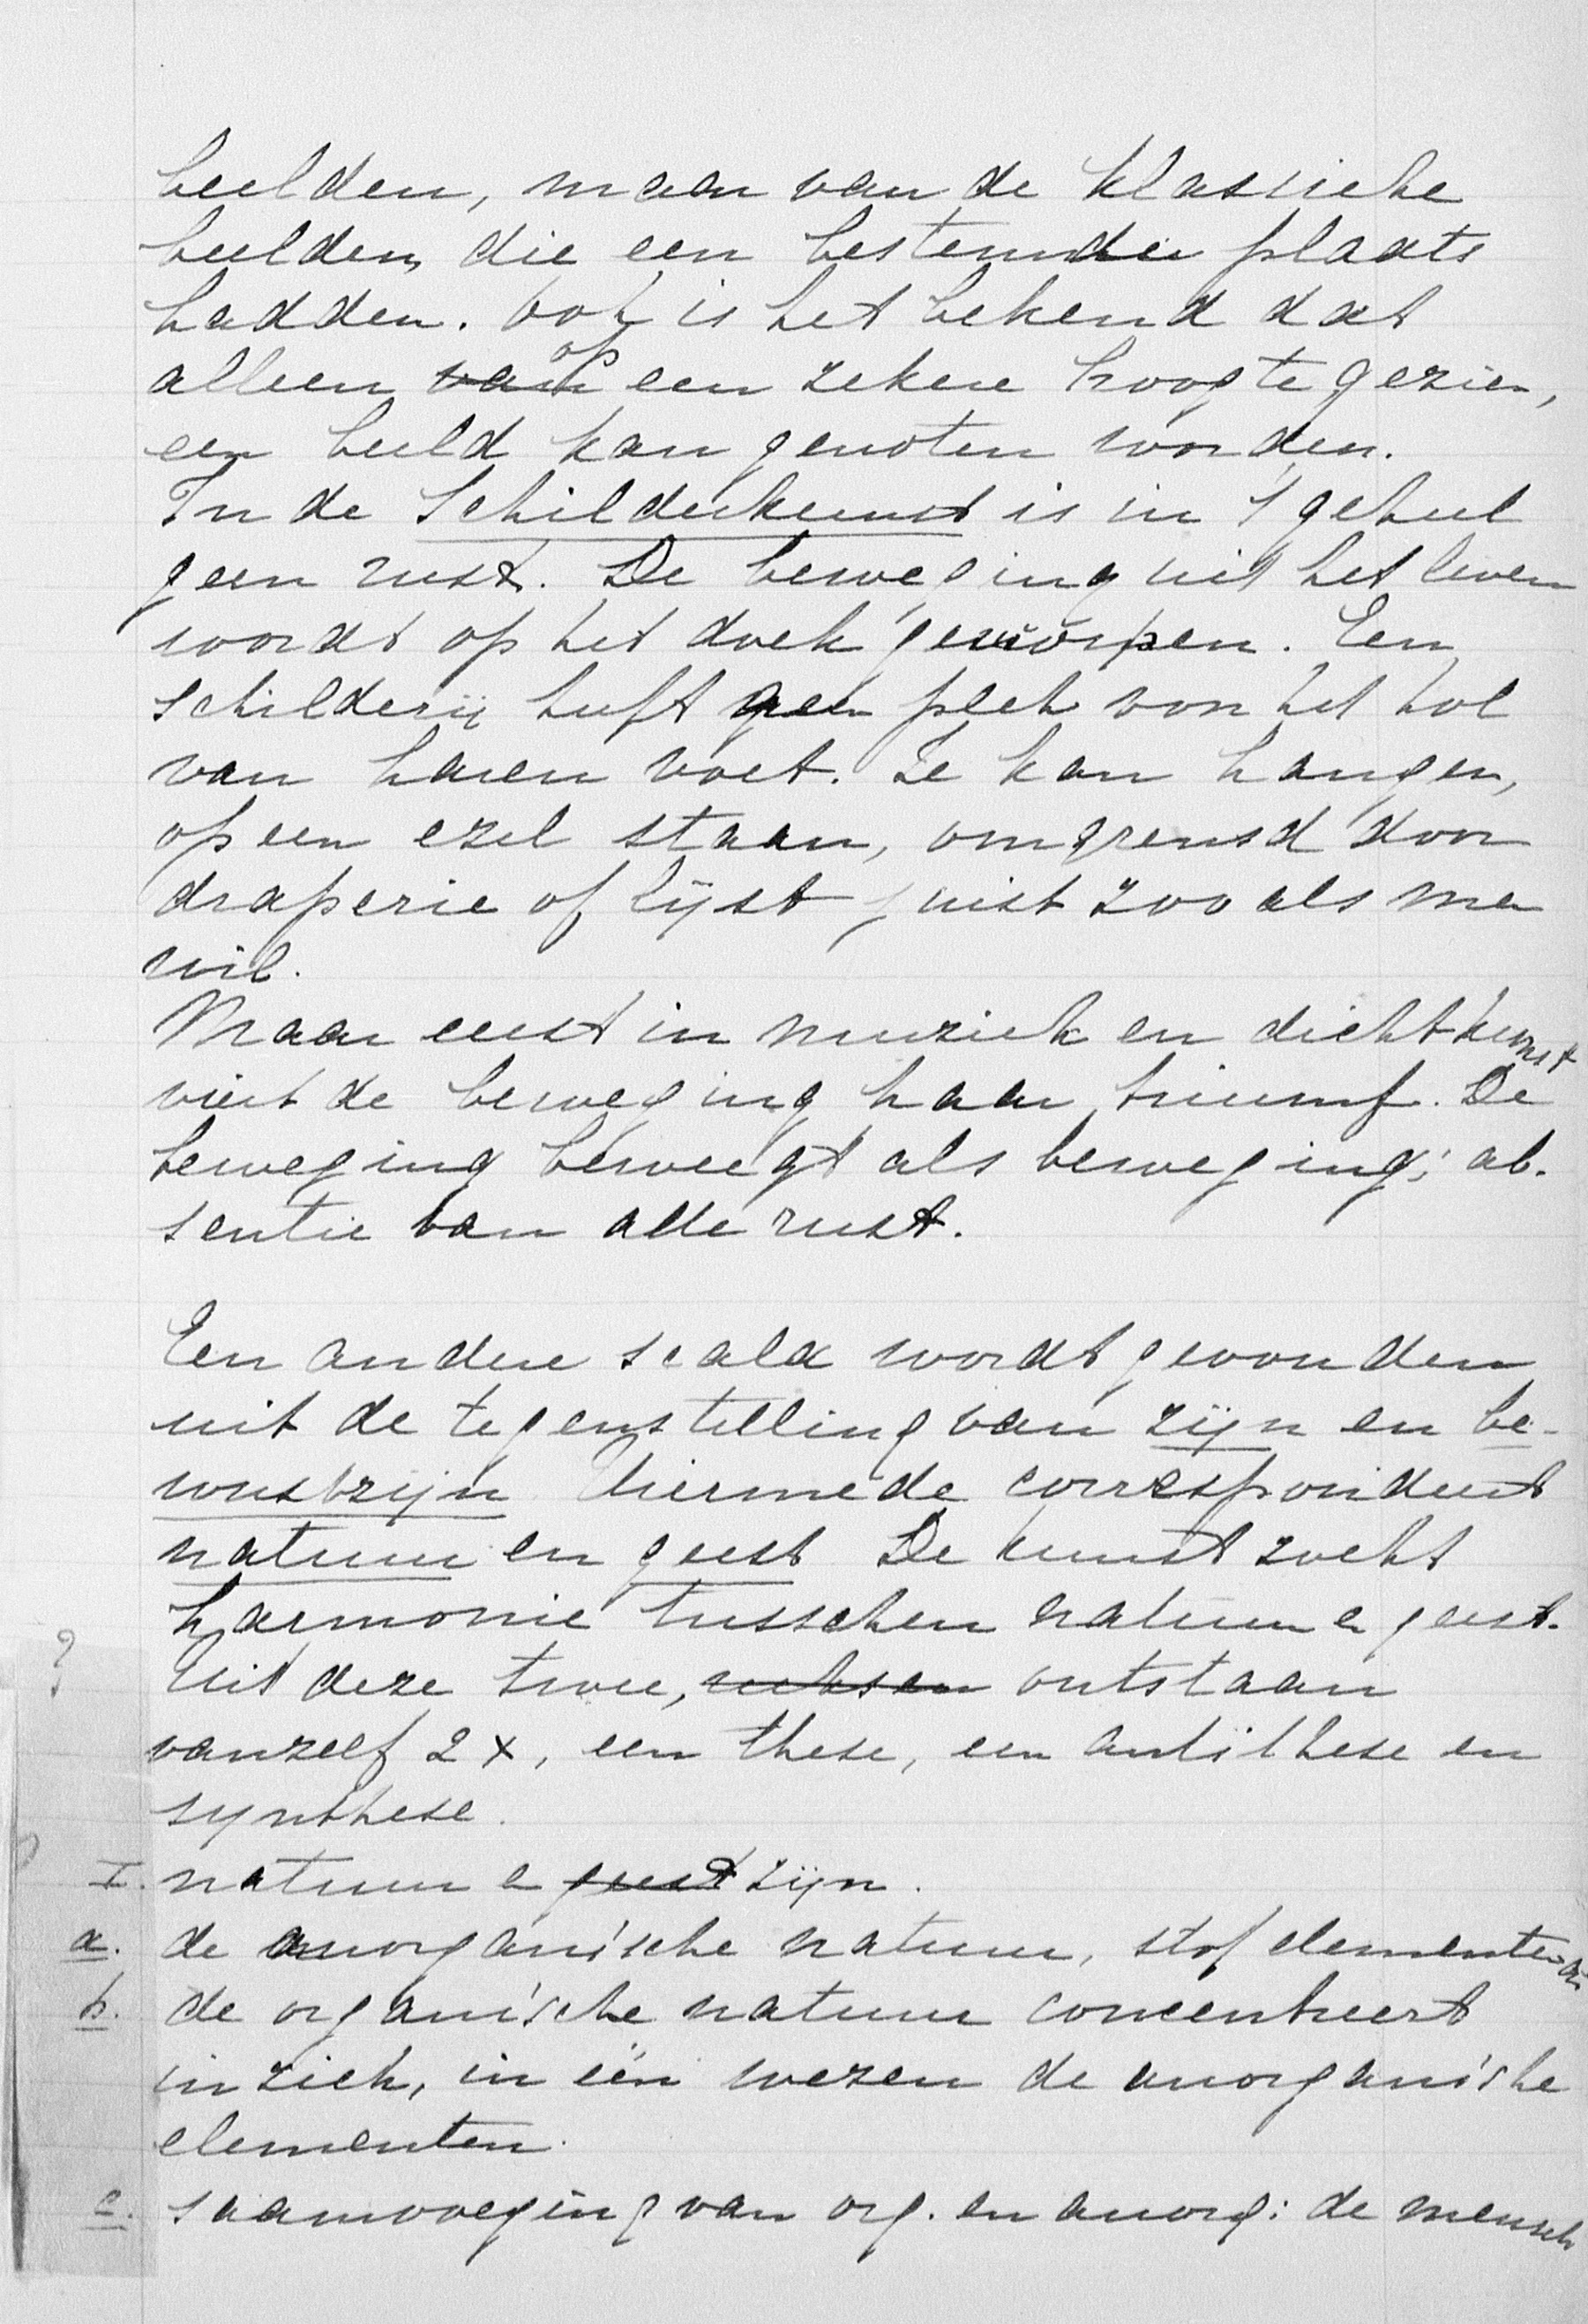 beelden, maar van de klassieke
beelden, die een bestemde plaats
hadden. Ook is het bekend dat
alleen van op een zekere hoogte gezien,
een beeld kan genoten worden.
In de Schilderkunst is in 't geheel
geen rust. De beweging uit het leven
wordt op het doek geworpen. Een
schilderij heeft geen plek voor het hol
van haren voet. Ze kan hangen,
op een ezel staan, omgrensd door
draperie of lijst juist zooals men
wil.
Maar eerst in muziek en dichtkunst
viert de beweging haar triumf. De
beweging beweegt als beweging; ab-
sentie van alle rust.
Een andere scala wordt gevonden
uit de tegenstelling van zijn en be-
wustzijn hiermede correspondeert
natuur en geest De kunst zoekt
harmonie tusschen natuur en geest.
? Uit deze twee, ontstaan
vanzelf 2 x, een these, een antithese en
synthese.
I. natuur en geest zijn.
a. de anorganische natuur, stof elementen
b. de organische natuur concentreert
in zich, in één wezen de anorganische
elementen.
c. saamvoeging van org. en anorg: de mensch